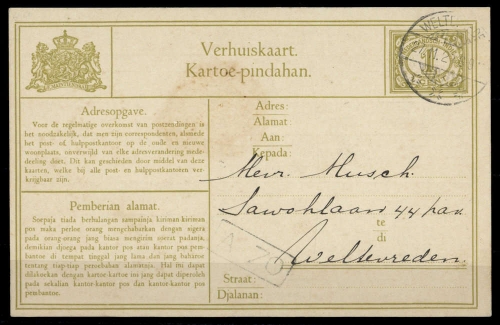 Verhuiskaart.
Kartoe-pindahan.
WELTE
1
Adresopgave.
Voor de regelmatige overkomst van postzendingen is
het noodzakelijk, dat men zijn correspondenten, alsmede
het post- of hulppostkantoor op de oude en nieuwe
woonplaats, onverwijld van elke adresverandering mede-
deeling doet. Dit kan geschieden door middel van deze
kaarten, welke bij alle post- en hulppostkantoren ver-
krijgbaar zijn.
Pemberian alamat.
Soepaja tiada berhalangan sampainja kiriman-kiriman
pos maka perloe orang mengchabarkan dengan sigera
pada orang-orang jang biasa mengirim soerat padanja,
demikian djoega pada kantor pos atau kantor pos bantoe
di tempat tinggal jang lama dan jang bahroe
tentang tiap-tiap peroebahan alamatnja. Hal ini dapat
dilakoekan dengan kartoe-kartoe ini jang dapat diperoleh
pada sekalian kantor-kantor pos dan kantor-kantor pos
pembantoe.
Adres:
Alamat:
Aan:
Kepada:
Mevr. Musch.
Sawohlaan 44 pav.
te
di
Weltevreden.
Straat:
Djalanan: